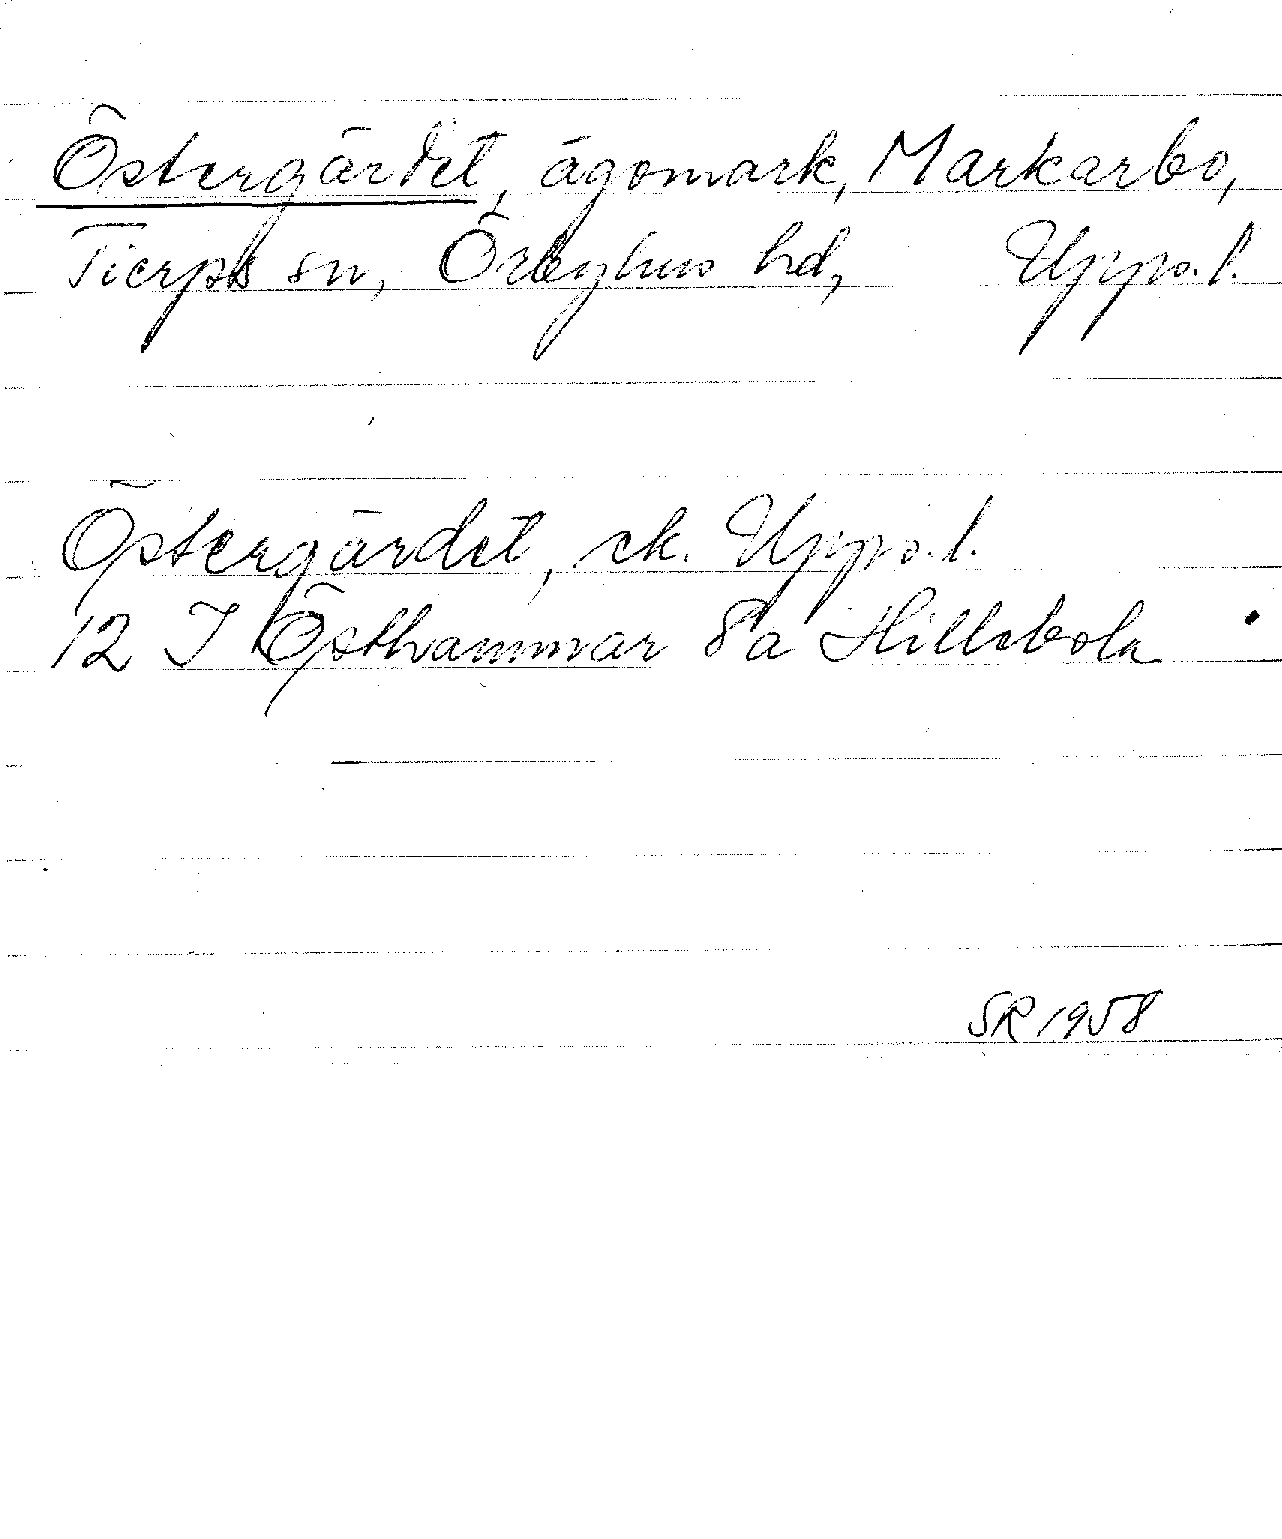 Östergärdet, ägomark, Markarbo,
Tierps sn, Örbyhus hd, Upps.l.
Östergärdet, ek. Upps.l.
12 I Östhammar 8a Hillebola
SR 1958